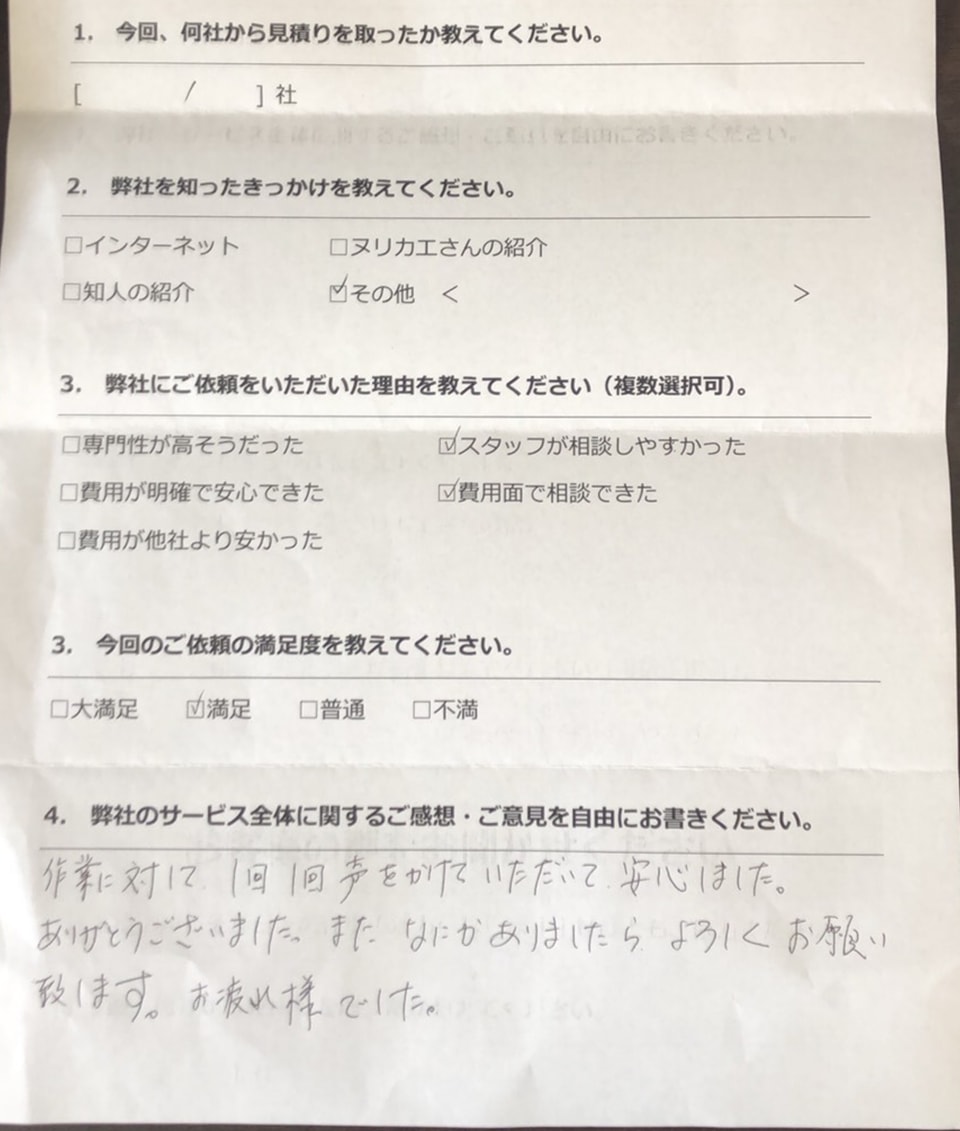 1. 今回、何社から見積りを取ったか教えてください。
[ / ] 社
2. 弊社を知ったきっかけを教えてください。
□インターネット □ヌリカエさんの紹介
□知人の紹介 ☑その他 < >
3. 弊社にご依頼をいただいた理由を教えてください（複数選択可）。
□専門性が高そうだった ☑スタッフが相談しやすかった
□費用が明確で安心できた ☑費用面で相談できた
□費用が他社より安かった
3. 今回のご依頼の満足度を教えてください。
□大満足 ☑満足 □普通 □不満
4. 弊社のサービス全体に関するご感想・ご意見を自由にお書きください。
作業に対して 1回 1回 声をかけて いただいて 安心しました。
ありがとうございました。また なにかありましたら よろしく お願い
致します。お疲れ様でした。